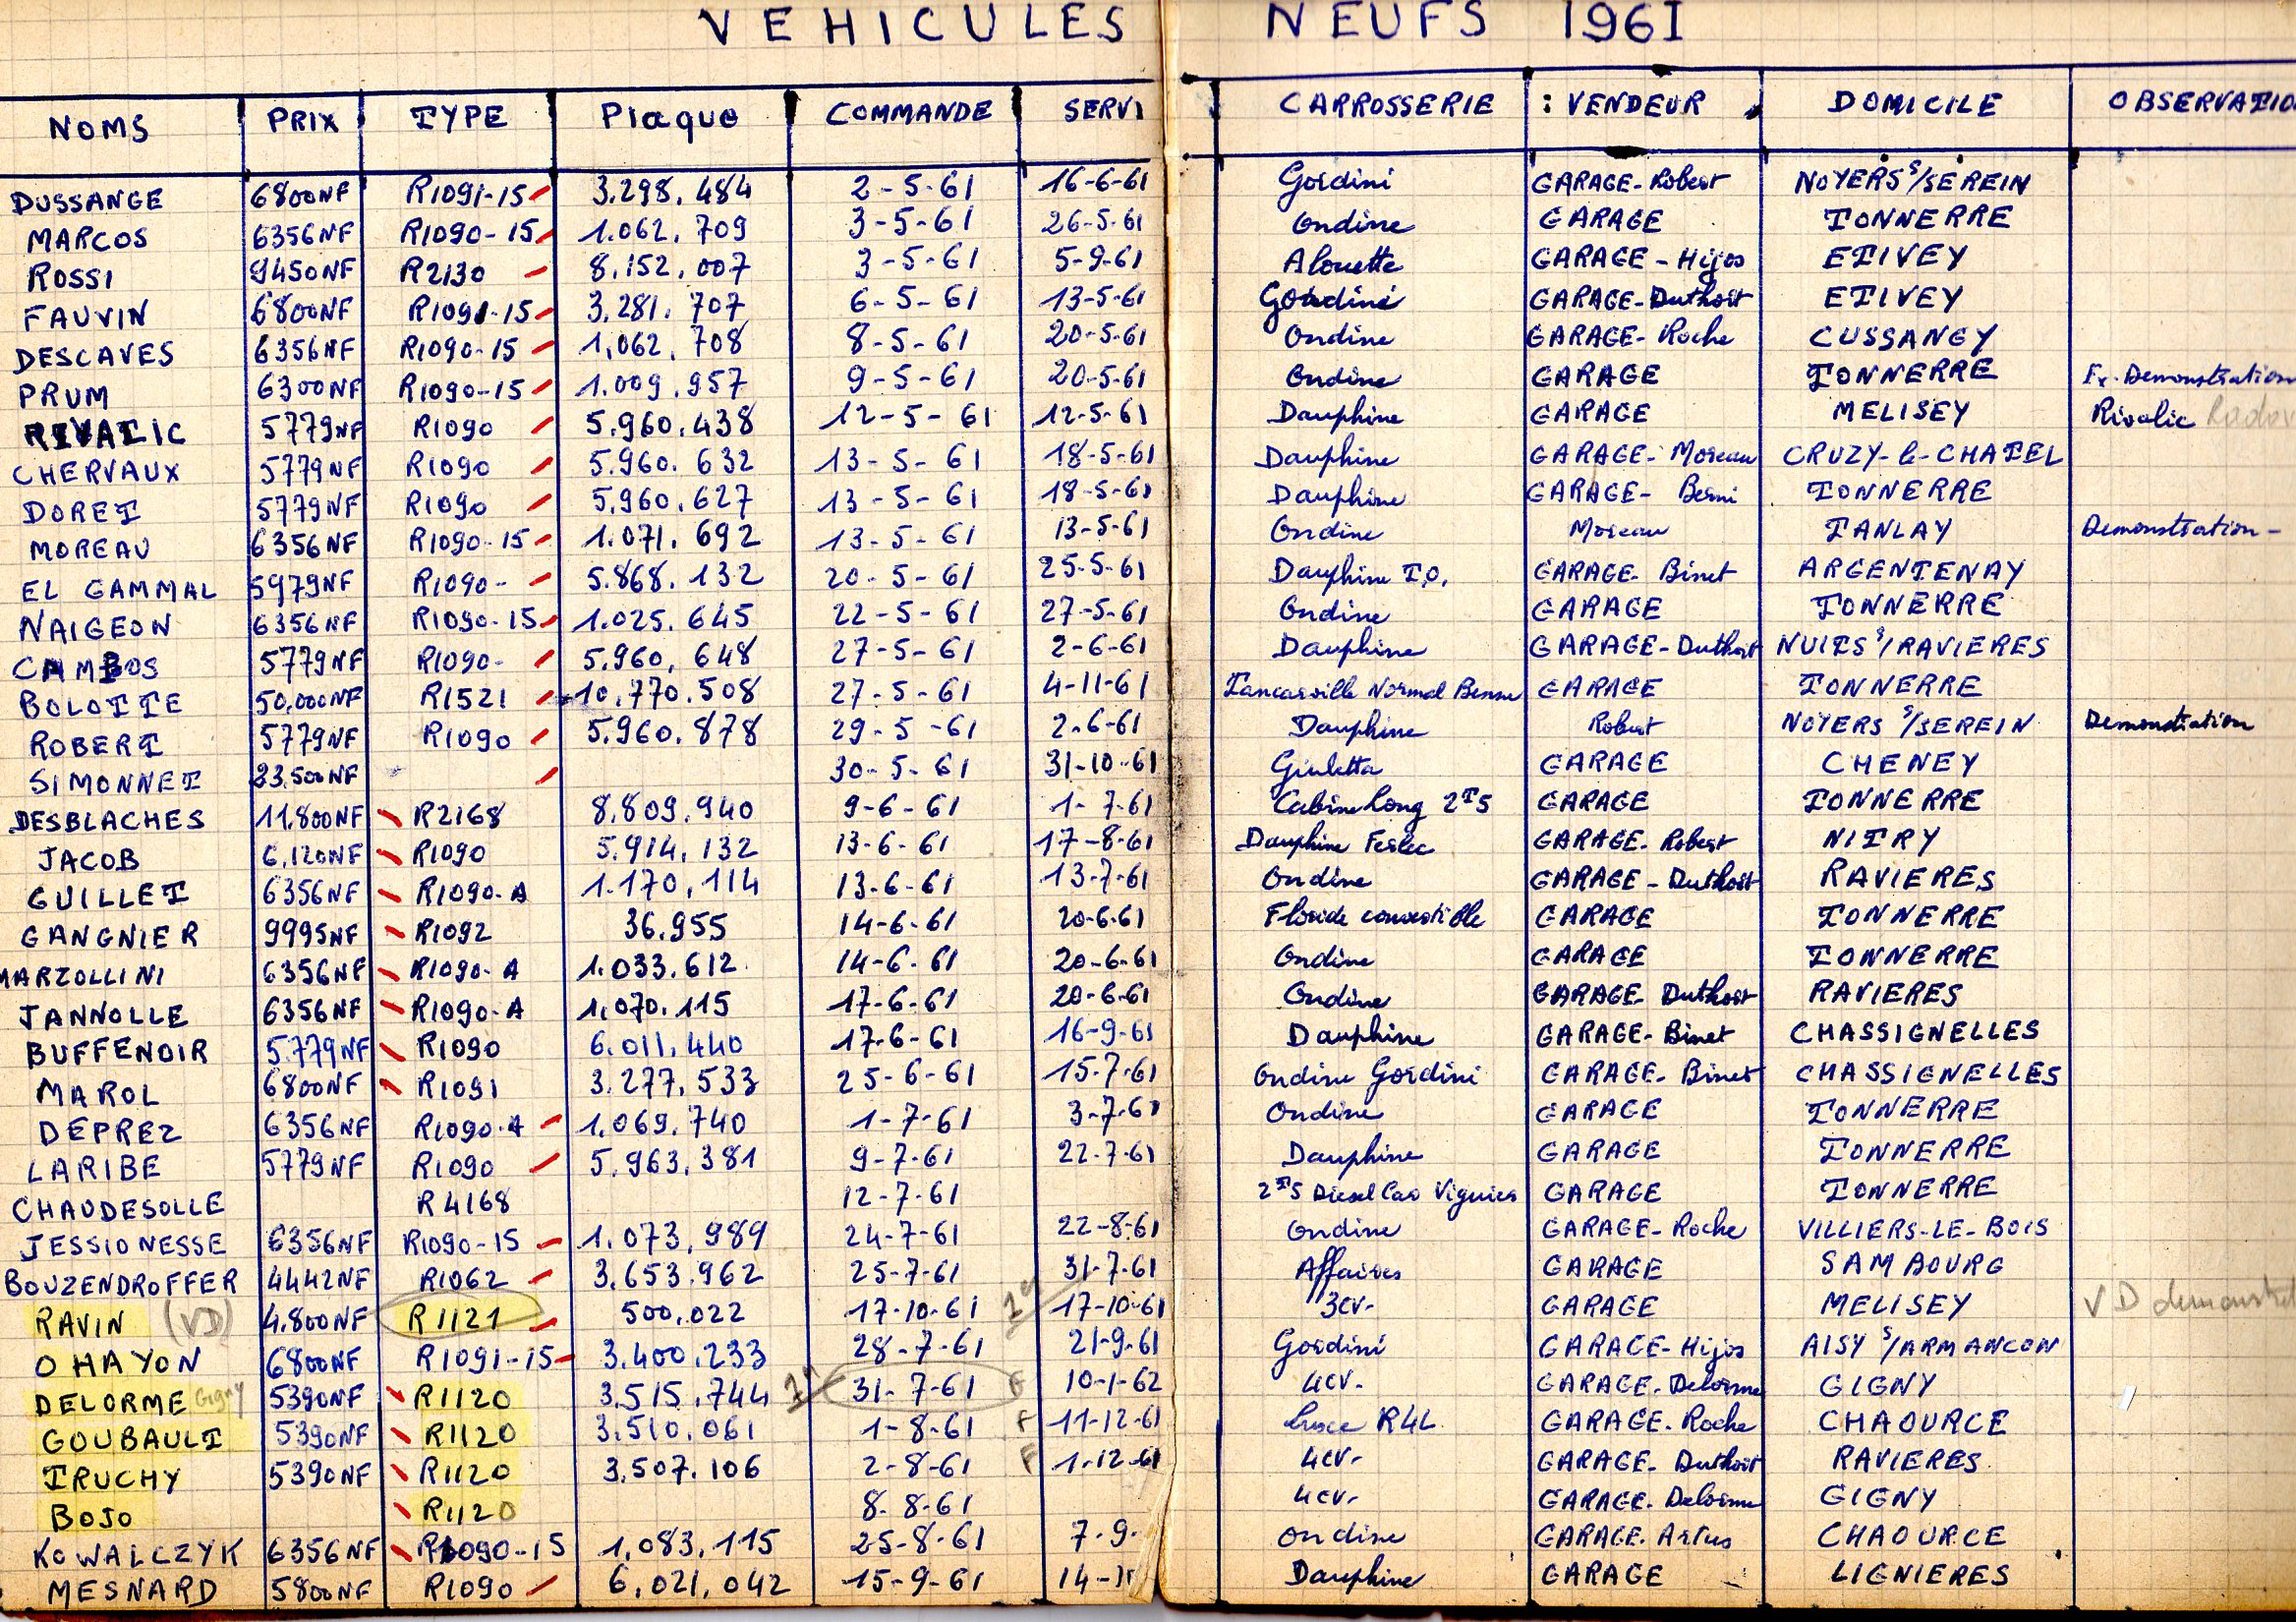 VEHICULES NEUFS 1961
NOMS PRIX TYPE Plaque COMMANDE SERVI CARROSSERIE : VENDEUR DOMICILE OBSERVATIO
DUSSANGE 6800NF R1091-15 3.298.484 2-5-61 16-6-61 Gordini GARAGE-Robert NOYERS S/SEREIN
MARCOS 6356NF R1090-15 1.062.709 3-5-61 26-5-61 Ondine GARAGE TONNERRE
ROSSI 9450NF R2130 8.152.007 3-5-61 5-9-61 Alouette GARAGE-Hijos ETIVEY
FAUVIN 6800NF R1091-15 3.281.707 6-5-61 13-5-61 Gordini GARAGE-Duthoit ETIVEY
DESCAVES 6356NF R1090-15 1.062.708 8-5-61 20-5-61 Ondine GARAGE-Roche CUSSANGY
PRUM 6300NF R1090-15 1.009.957 9-5-61 20-5-61 Ondine GARAGE TONNERRE Ex. Demonstration
RIVALIC 5779NF R1090 5.960.438 12-5-61 12-5-61 Dauphine GARAGE MELISEY Rivalic
CHERVAUX 5779NF R1090 5.960.632 13-5-61 18-5-61 Dauphine GARAGE-Moreau CRUZY-le-CHATEL
DORET 5779NF R1090 5.960.627 13-5-61 18-5-61 Dauphine GARAGE-Berni TONNERRE
MOREAU 6356NF R1090-15 1.071.692 13-5-61 13-5-61 Ondine Moreau TANLAY Demonstration-
EL GAMMAL 5979NF R1090- 5.868.132 20-5-61 25-5-61 Dauphine T.O. GARAGE-Binet ARGENTENAY
NAIGEON 6356NF R1090-15 1.025.645 22-5-61 27-5-61 Ondine GARAGE TONNERRE
CAMBOS 5779NF R1090- 5.960.648 27-5-61 2-6-61 Dauphine GARAGE-Duthoit NUITS S/RAVIERES
BOLOTTE 50.000NF R1521 10.770.508 27-5-61 4-11-61 Tancarville Normal Benne GARAGE TONNERRE
ROBERT 5779NF R1090 5.960.878 29-5-61 2-6-61 Dauphine Robert NOYERS S/SEREIN Demonstration
SIMONNET 23.500NF 30-5-61 31-10-61 Giuletta GARAGE CHENEY
DESBLACHES 11.800NF R2168 8.809.940 9-6-61 1-7-61 Cabine Long 2T5 GARAGE TONNERRE
JACOB 6.120NF R1090 5.914.132 13-6-61 17-8-61 Dauphine Ferlec GARAGE-Robert NITRY
GUILLET 6356NF R1090-A 1.170.114 13-6-61 13-7-61 Ondine GARAGE-Duthoit RAVIERES
GANGNIER 9995NF R1092 36.955 14-6-61 20-6-61 Floride convertible GARAGE TONNERRE
MARZOLLINI 6356NF R1090-A 1.033.612 14-6-61 20-6-61 Ondine GARAGE TONNERRE
JANNOLLE 6356NF R1090-A 1.070.115 17-6-61 20-6-61 Ondine GARAGE-Duthoit RAVIERES
BUFFENOIR 5.779NF R1090 6.011.440 17-6-61 16-9-61 Dauphine GARAGE-Binet CHASSIGNELLES
MAROL 6800NF R1091 3.277.533 25-6-61 15-7-61 Ondine Gordini GARAGE-Binet CHASSIGNELLES
DEPREZ 6356NF R1090-A 1.069.740 1-7-61 3-7-61 Ondine GARAGE TONNERRE
LARIBE 5779NF R1090 5.963.381 9-7-61 22-7-61 Dauphine GARAGE TONNERRE
CHAUDESOLLE R4168 12-7-61 2T5 Diesel Car Viguier GARAGE TONNERRE
JESSIONESSE 6356NF R1090-15 1.073.989 24-7-61 22-8-61 Ondine GARAGE-Roche VILLIERS-LE-BOIS
BOUZENDROFFER 4442NF R1062 3.653.962 25-7-61 31-7-61 Affaires GARAGE SAMBOURG
RAVIN (VD) 4.800NF R1121 500.022 17-10-61 17-10-61 3CV- GARAGE MELISEY VD demonstrat
OHAYON 6800NF R1091-15 3.400.233 28-7-61 21-9-61 Gordini GARAGE-Hijos AISY S/ARMANCON
DELORME Gigny 5390NF R1120 3.515.744 31-7-61 F 10-1-62 4CV- GARAGE-Delorme GIGNY
GOUBAULT 5390NF R1120 3.510.061 1-8-61 F 11-12-61 Luxe R4L GARAGE-Roche CHAOURCE
TRUCHY 5390NF R1120 3.507.106 2-8-61 F 1-12-61 4CV- GARAGE-Duthoit RAVIERES
BOJO R1120 8-8-61 4CV- GARAGE-Delorme GIGNY
KOWALCZYK 6356NF R1090-15 1.083.115 25-8-61 7-9- Ondine GARAGE-Artus CHAOURCE
MESNARD 5800NF R1090 6.021.042 15-9-61 14- Dauphine GARAGE LIGNIERES